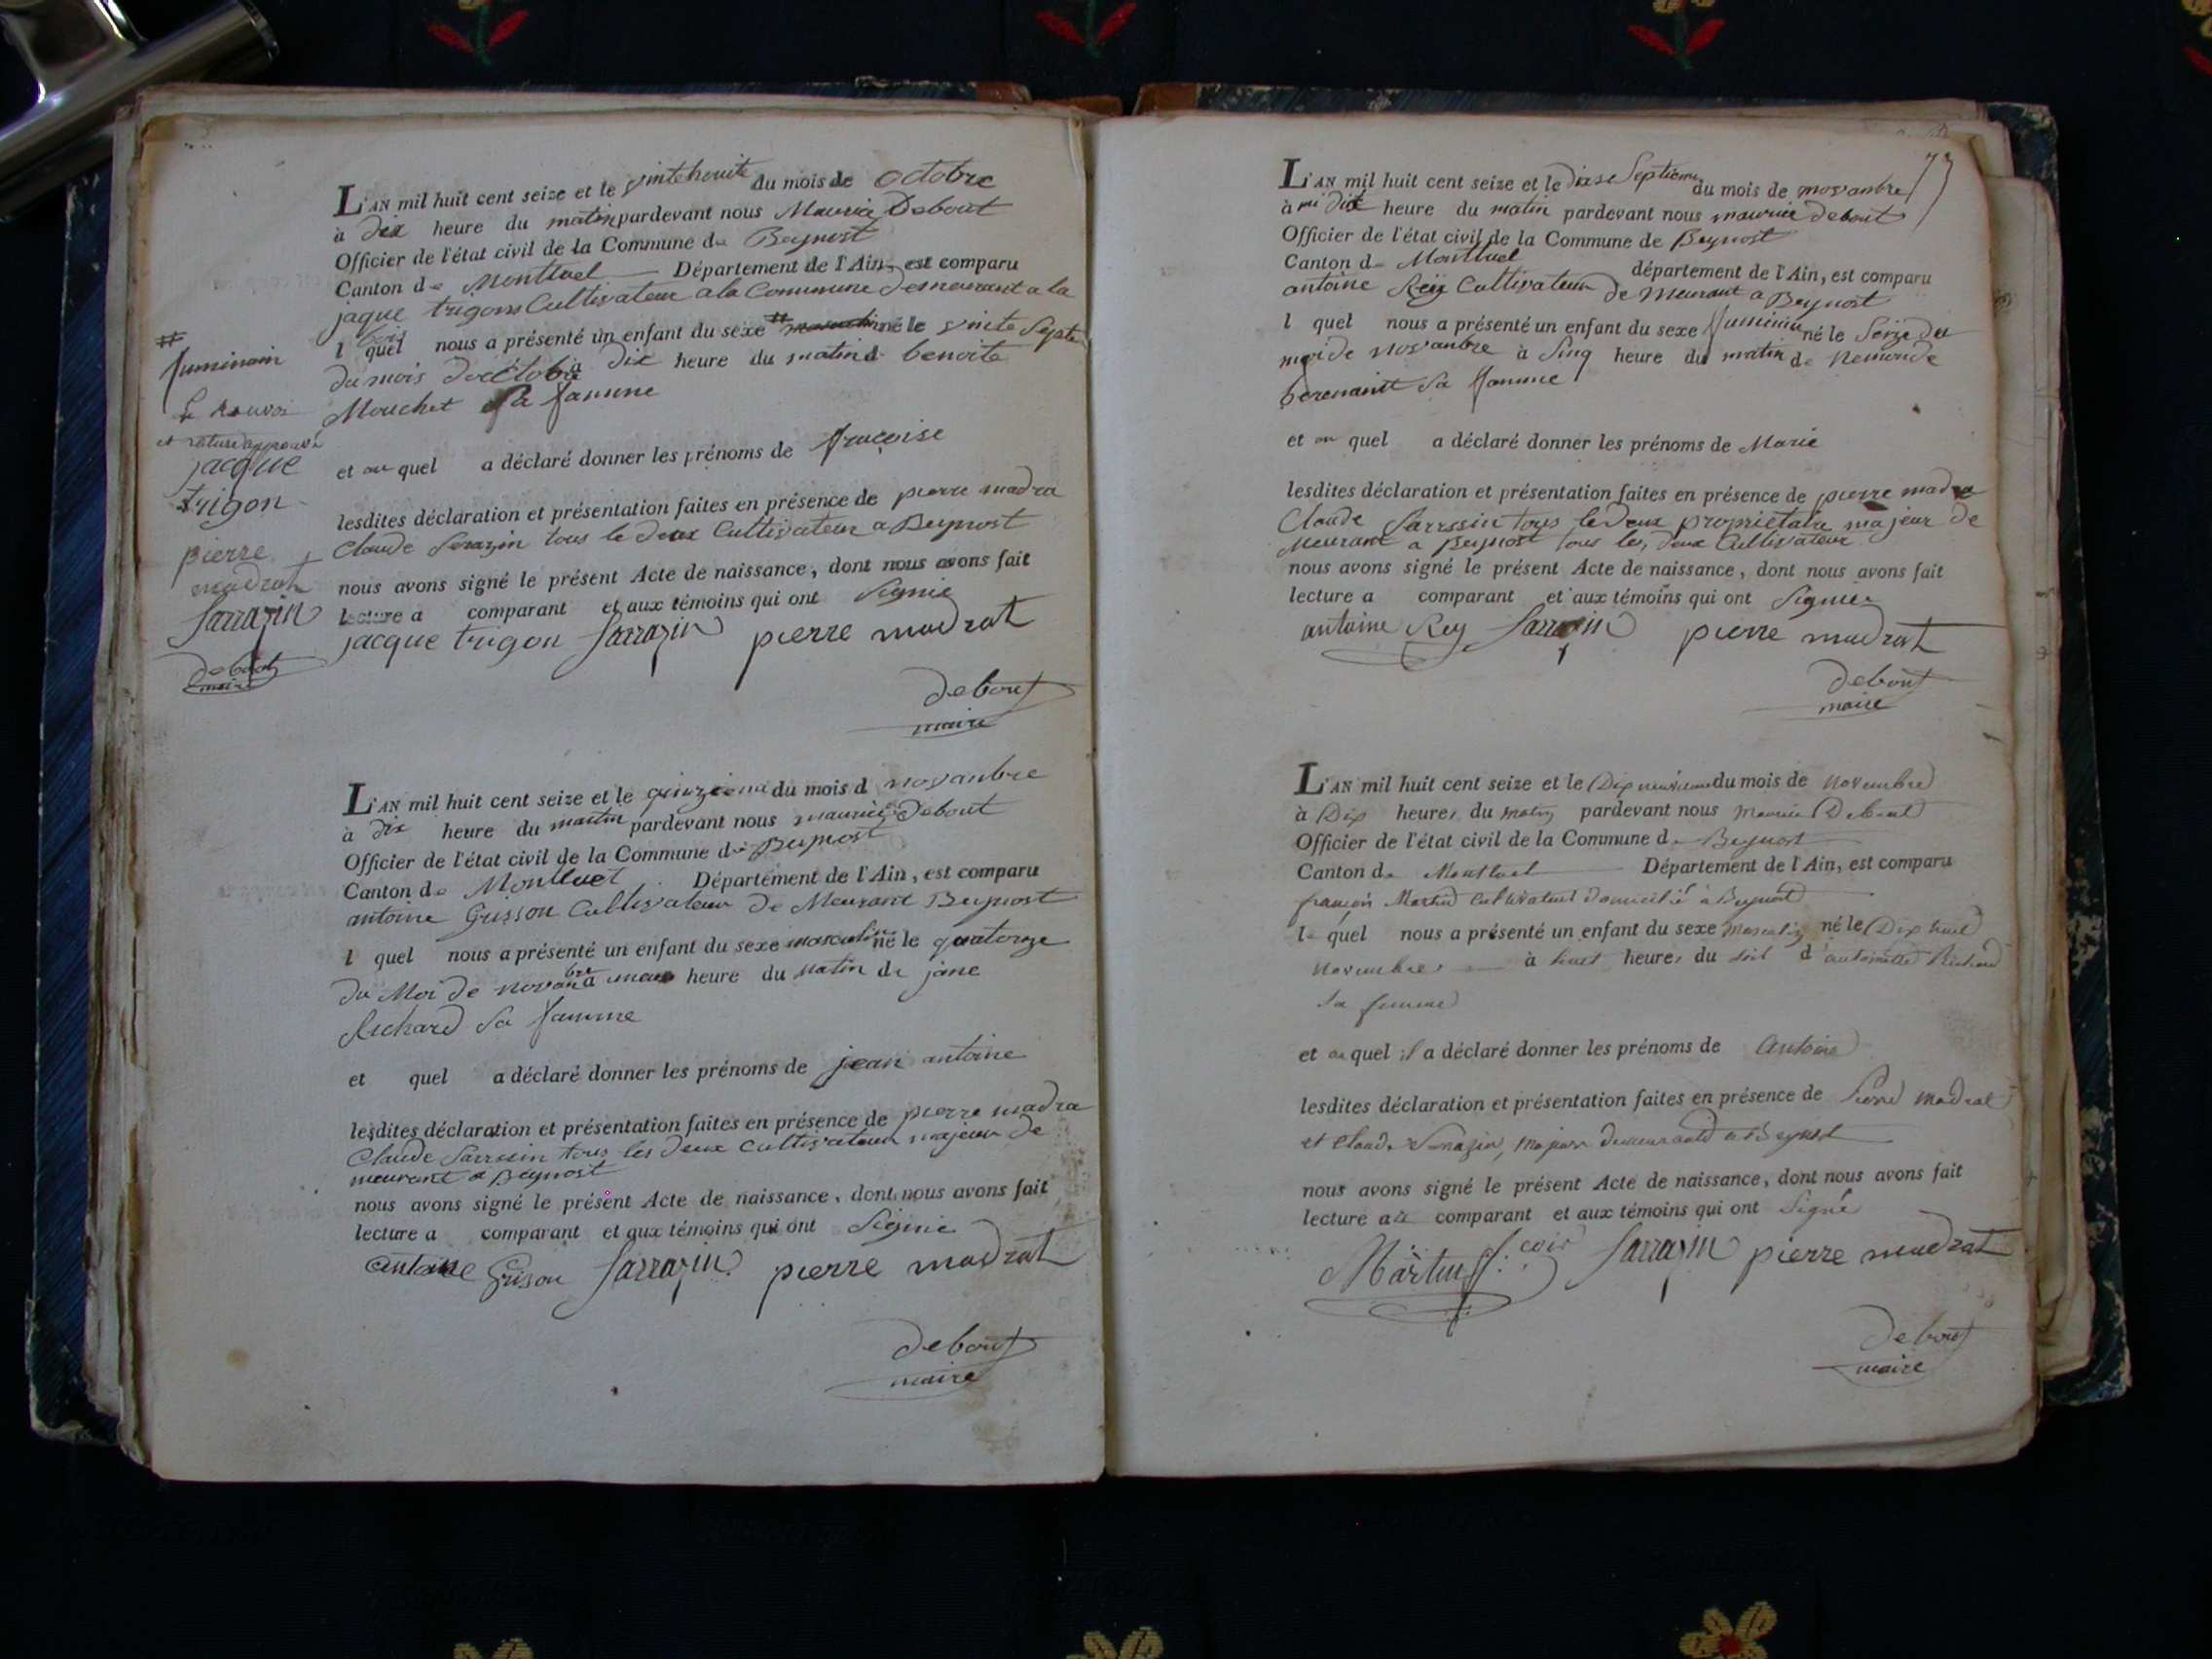 L'AN mil huit cent seize et le vintehouite du mois de octobre
à dix heure du matin pardevant nous Maurice Debout
Officier de l'état civil de la Commune de Beynost
Canton de Montluel Département de l'Ain, est comparu
jaque trigon Cultivateur a la Commune demeurant a la
bois
l quel nous a présenté un enfant du sexe # masculin né le vinte Septe
du mois doctobre a dix heure du matin d benoite
Mouchet Sa famme
et au quel a déclaré donner les prénoms de françoise
lesdites déclaration et présentation faites en présence de pierre madra
Claude Serazin tous le deux Cultivateur a Beynost
nous avons signé le présent Acte de naissance, dont nous avons fait
lecture a comparant et aux témoins qui ont Signié
jacque trigon Sarrazin pierre madrat
debout
maire
#
fuminain
Le Renvoi
et rature approuvé
jacque
trigon
pierre
madrat
Sarrazin
debout
maire
L'AN mil huit cent seize et le quinzieme du mois d novanbre
à dix heure du matin pardevant nous maurice Debout
Officier de l'état civil de la Commune de Beynost
Canton de Montluel Département de l'Ain, est comparu
antoine Grisson Cultivateur de Meurant Beynost
l quel nous a présenté un enfant du sexe masculin né le quatorze
du Moi de novanbre a heure du matin de jane
Richard Sa famme
et quel a déclaré donner les prénoms de jean antoine
lesdites déclaration et présentation faites en présence de pierre madra
Claude Sarrasin tous les deux cultivateur majeur de
meurant a Beynost
nous avons signé le présent Acte de naissance, dont nous avons fait
lecture a comparant et aux témoins qui ont Signié
antoine Grison Sarrazin pierre madrat
debout
maire
73
L'AN mil huit cent seize et le dise Septieme du mois de novanbre
à dix heure du matin pardevant nous maurice debout
Officier de l'état civil de la Commune de Beynost
Canton de Montluel département de l'Ain, est comparu
antoine Reÿ Cultivateur de Meurant a Beynost
l quel nous a présenté un enfant du sexe fuminin né le Seize du
moi de novanbre à Sinq heure du matin de
Sa famme
et au quel a déclaré donner les prénoms de Marie
lesdites déclaration et présentation faites en présence de pierre madra
Claude Sarrssin tous le deux proprietaire majeur de
Meurant a Beynost tous les deux Cultivateur
nous avons signé le présent Acte de naissance, dont nous avons fait
lecture a comparant et aux témoins qui ont Signier
antoine Rey Sarrazin pierre madrat
debout
maire
L'AN mil huit cent seize et le Dix neuvieme du mois de novembre
à Dix heures du matin pardevant nous Maurice Debout
Officier de l'état civil de la Commune de Beynost
Canton de Montluel Département de l'Ain, est comparu
françois Martin cultivateur domicilié à Beynost
le quel nous a présenté un enfant du sexe masculin né le Dix huit
novembre à huit heures du soir d'antoinette Richard
sa femme
et au quel il a déclaré donner les prénoms de Antoine
lesdites déclaration et présentation faites en présence de Pierre Madrat
et Claude Sarrazin, majeurs demeurants à Beynost
nous avons signé le présent Acte de naissance, dont nous avons fait
lecture au comparant et aux témoins qui ont Signé
Martin f.çois Sarrazin pierre madrat
debout
maire